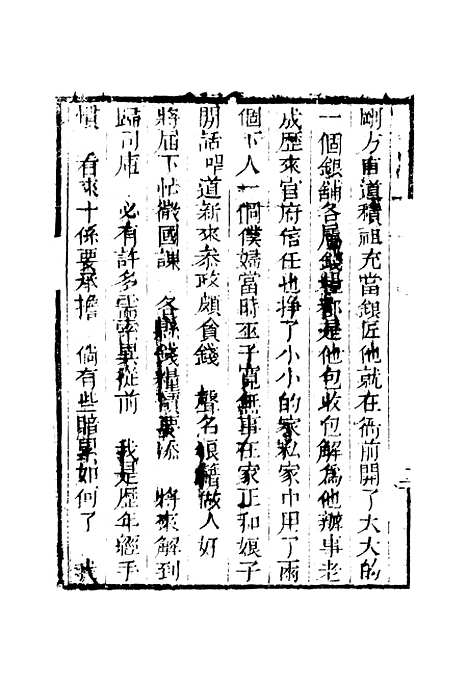 剛方直道積祖充當銀匠他就在衙前開了大大的
一個銀舖各屬錢糧都是他包收包解為他辦事老
成歷來官府信任也掙了小小的家私家中用了兩
個下人一個僕婦當時巫子寬無事在家正和娘子
閒話唱道新來叅政頗貪錢 聲名狼籍做人好
將屆下忙徵國課 各縣錢糧須要添 將來解到
歸司庫 必有許多需索異從前 我是歷年經手
慣 看來干係要承擔 倘有些暗累如何了 我
二